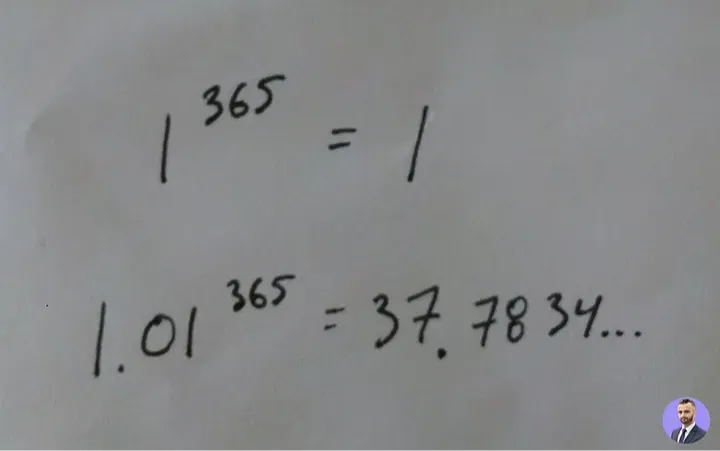 1^365 = 1
1.01^365 = 37.7834...